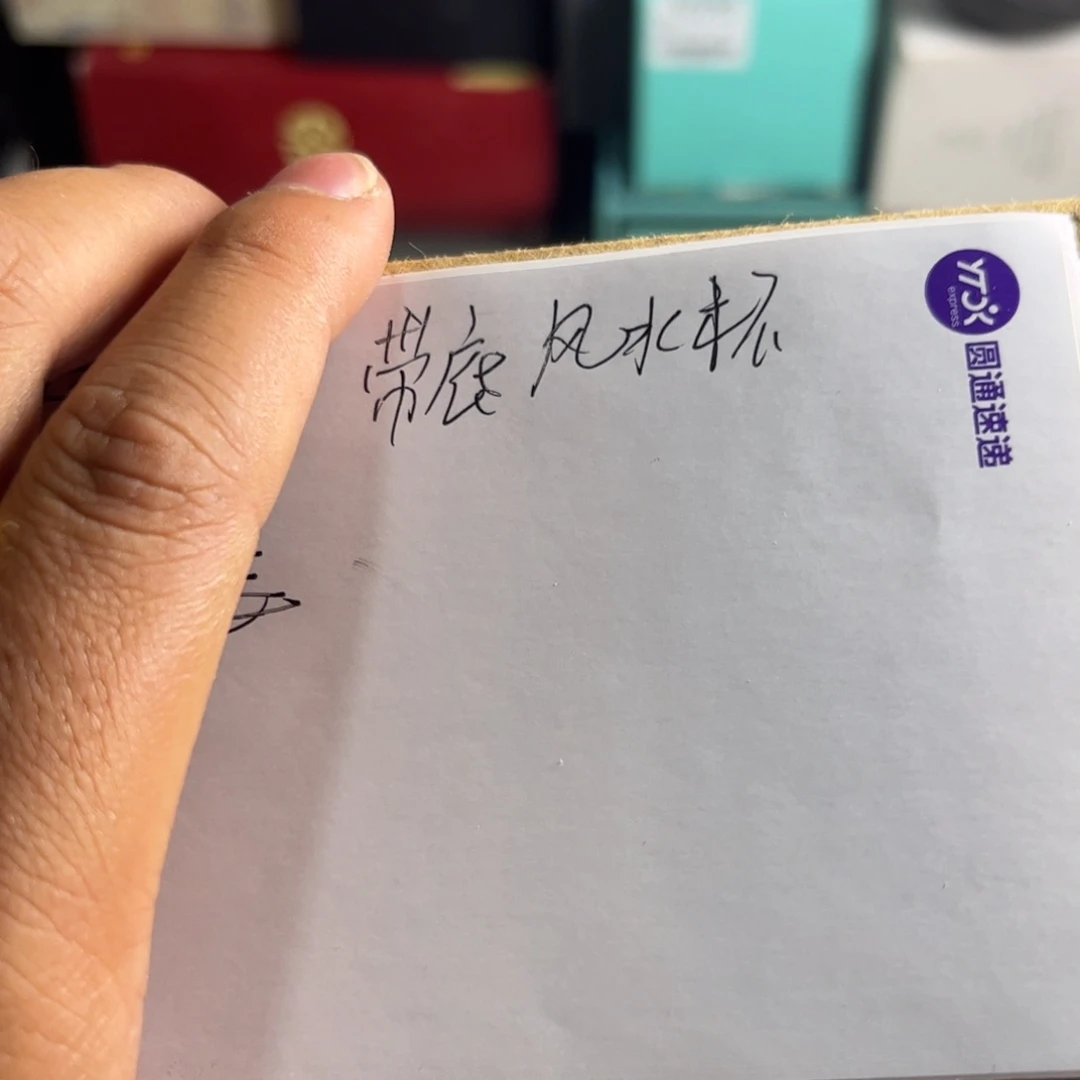 带底 风水杯
YTO
express
圆通速递